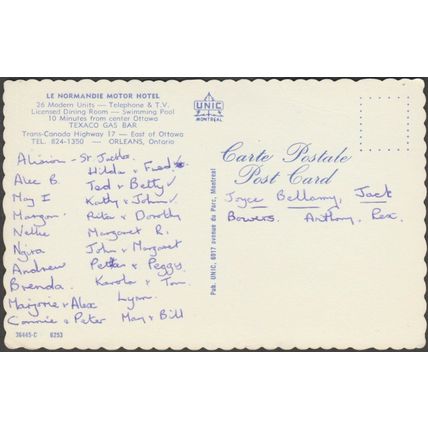 LE NORMANDIE MOTOR HOTEL
26 Modern Units — Telephone & T.V.
Licensed Dining Room — Swimming Pool
10 Minutes from center Ottawa
TEXACO GAS BAR
Trans-Canada Highway 17 — East of Ottawa
TEL. 824-1350 — ORLEANS, Ontario
UNIC
MONTREAL
Carte Postale
Post Card
Pub. UNIC, 6917 avenue du Parc, Montreal
Alison - St
Hilda + Fred
Alec B. Ted + Betty
May I Kathy + John
Margam Peter + Dorothy
Nellie Margaret R.
John + Margaret
Andrew Peter + Peggy.
Brenda. Karola + Tom.
Marjorie + Alex Lynn.
Connie + Peter May + Bill
Joyce Bellamy, Jack
Bowers. Anthony. Rex.
36445-C 6253